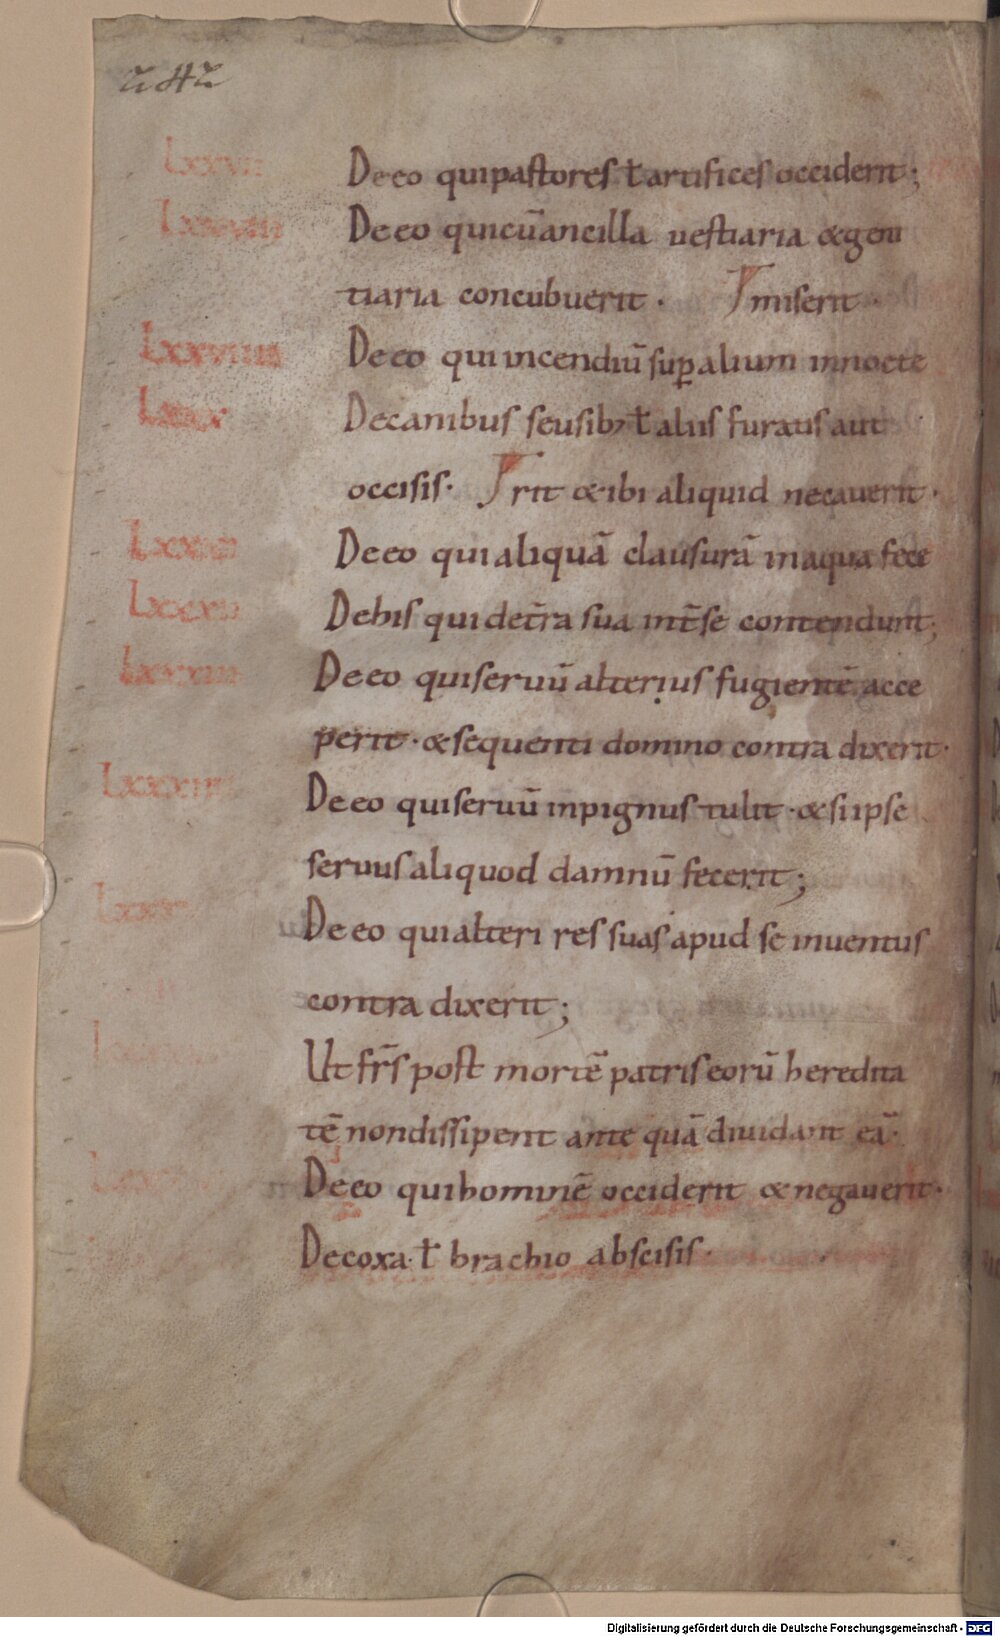 Lxxvii De eo qui pastores ł artifices occiderit;
Lxxviii De eo qui cū ancilla uestiaria &geni
tiaria concubuerit · miserit ·
Lxxviiii De eo qui incendiū sup alium in nocte
Lxxx De canibus seusib; ł aliis furatis aut
occisis · rit & ibi aliquid necauerit ·
Lxxxi De eo qui aliquā clausurā in aqua fece
Lxxxii De his qui de tr̄a sua int̄ se contendunt;
Lxxxiii De eo qui seruū alterius fugientē acce
perit · & sequenti domino contra dixerit ·
Lxxxiiii De eo qui seruū inpignus tulit · & si ipse
seruus aliquod damnū fecerit;
Lxxxv De eo qui alteri res suas apud se inuentus
contra dixerit;
Ut fr̄s post mortē patris eorū heredita
tē non dissipent ante quā diuidant eā ·
De eo qui hominē occiderit & negauerit ·
De coxa · ł brachio abscisis ·
Digitalisierung gefördert durch die Deutsche Forschungsgemeinschaft - DFG